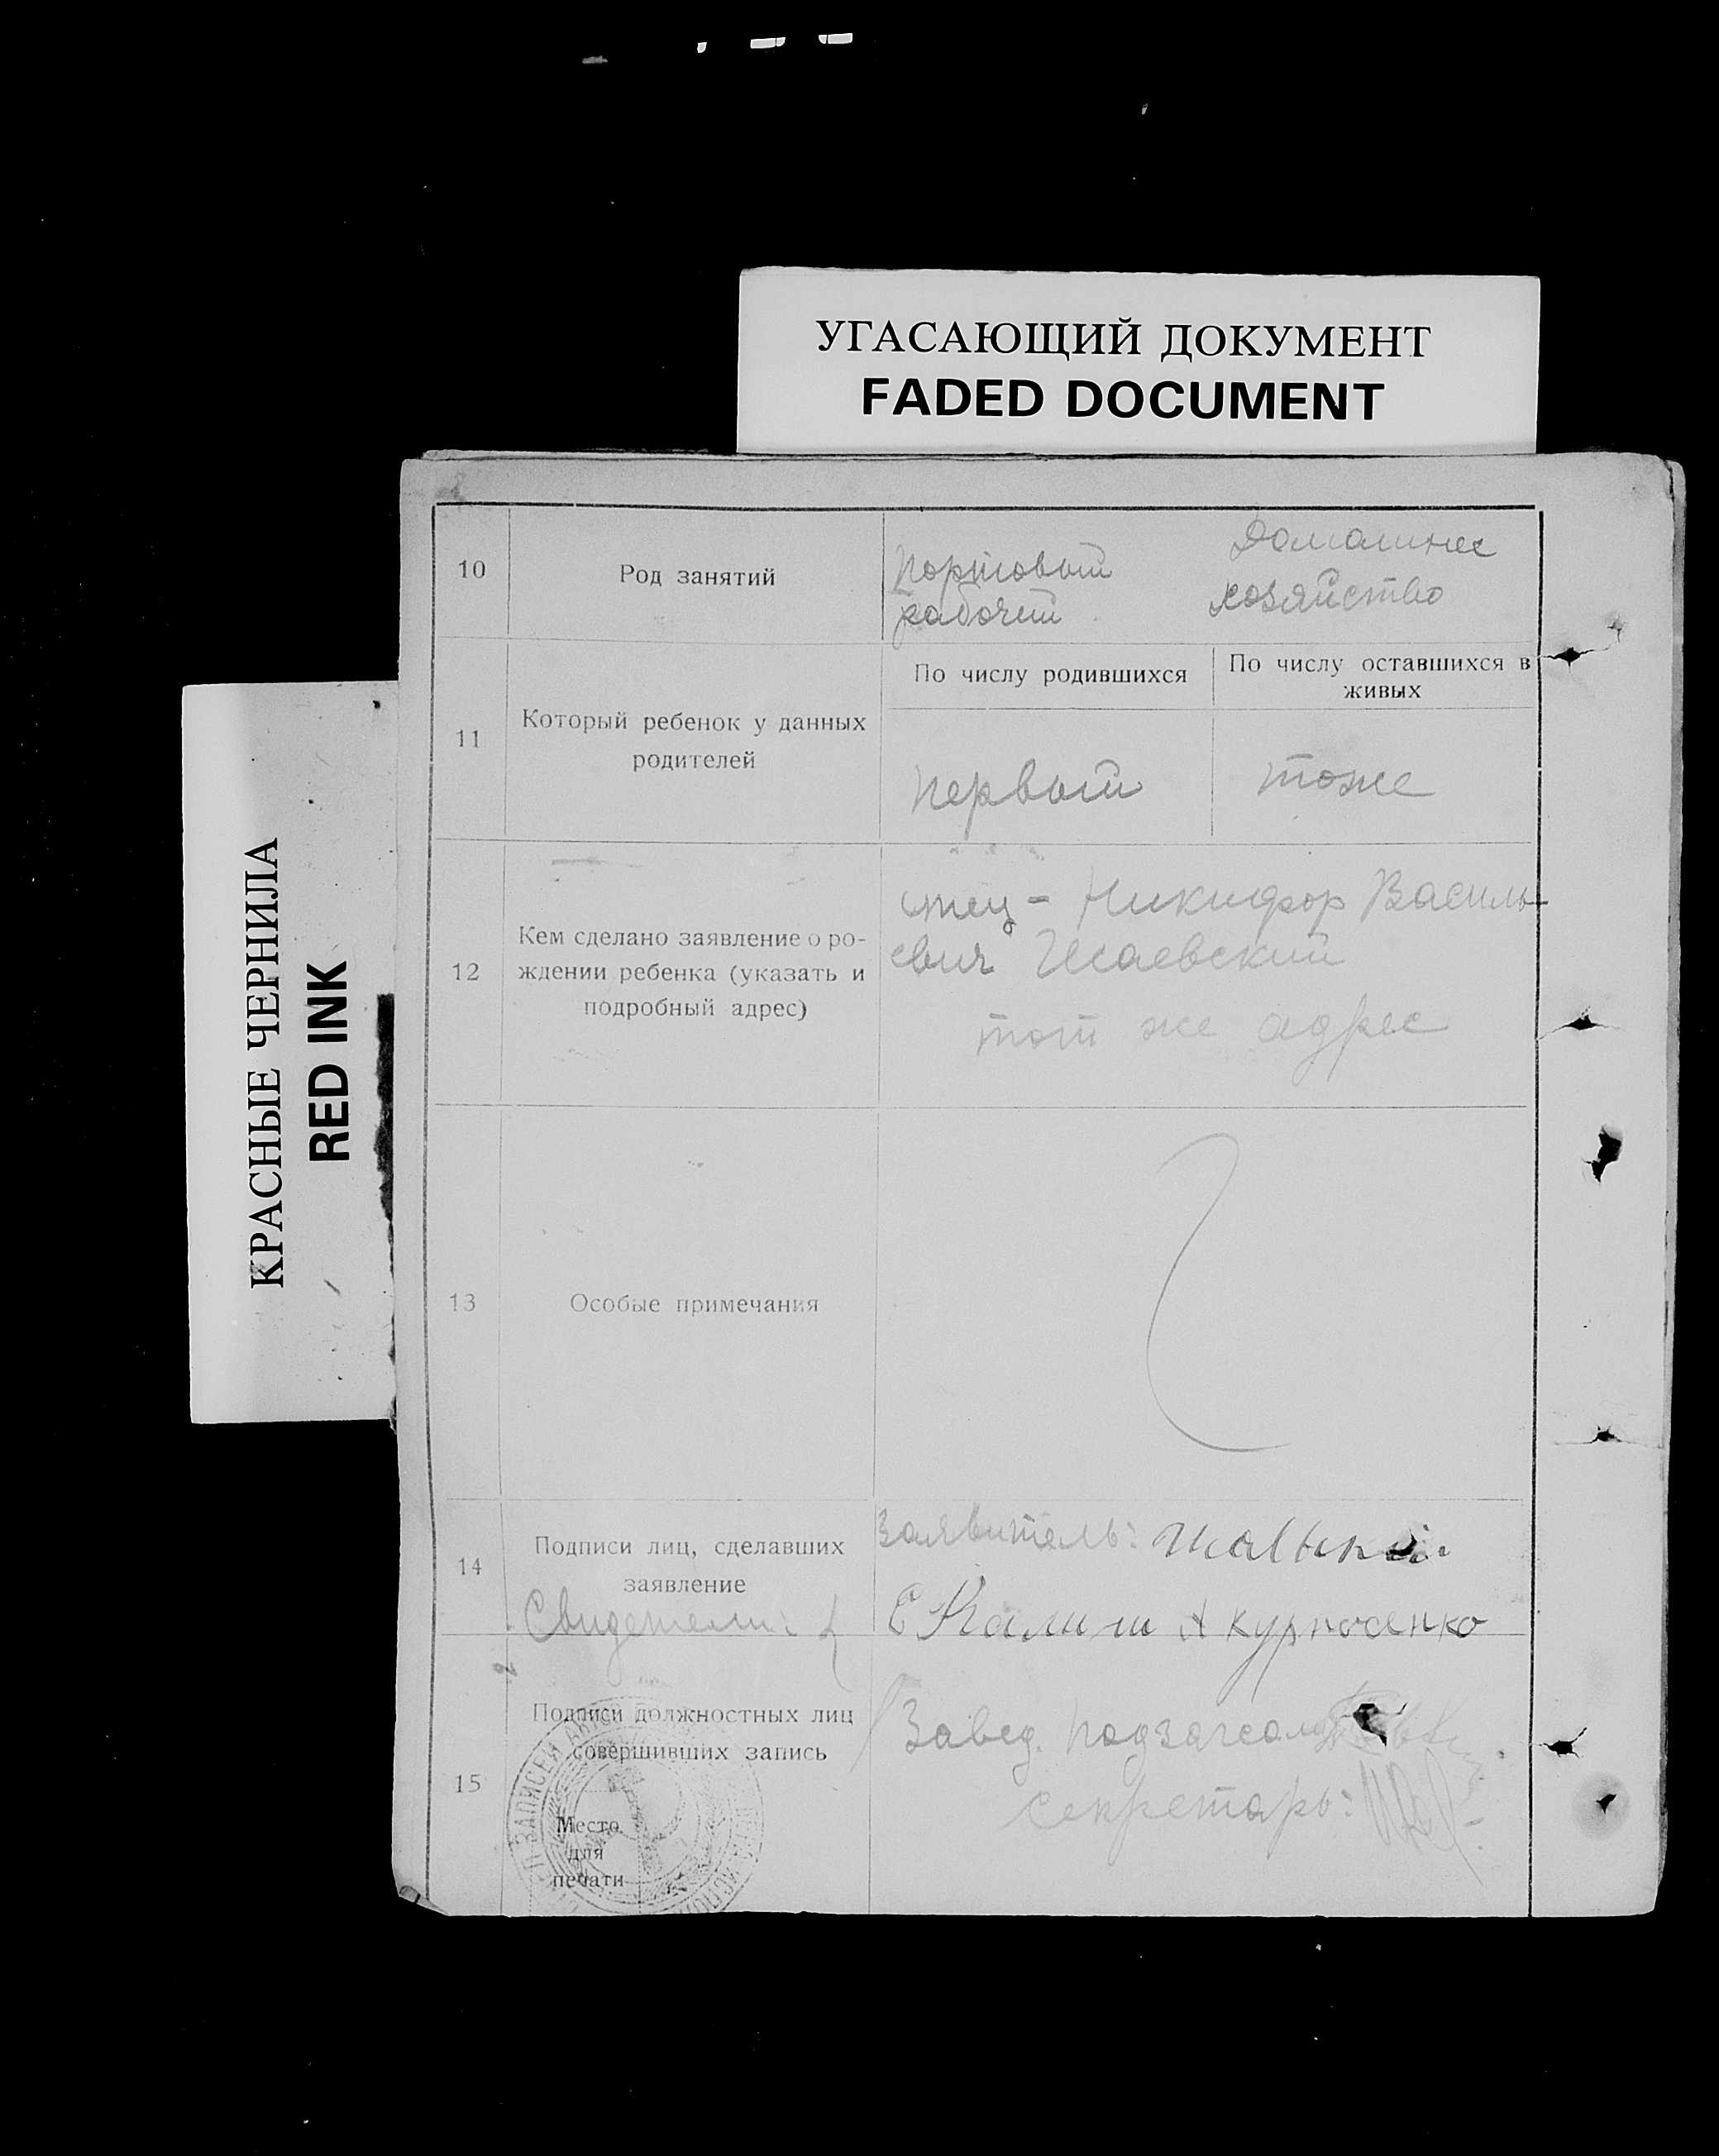 УГАСАЮЩИЙ ДОКУМЕНТ
FADED DOCUMENT
КРАСНЫЕ ЧЕРНИЛА
RED INK
10
Род занятий
портовый
рабочий
Домашнее
хозяйство
11
Который ребенок у данных
родителей
По числу родившихся
По числу оставшихся в
живых
первый
тоже
12
Кем сделано заявление о ро-
ждении ребенка (указать и
подробный адрес)
отец - Никифор Василь-
евич Исаевский
тот же адрес
13
Особые примечания
14
Подписи лиц, сделавших
заявление
Заявитель:
Свидетели:
Курносенко
15
Подписи должностных лиц
совершивших запись
Место
для
печати
Завед. подзагсом
секретарь: